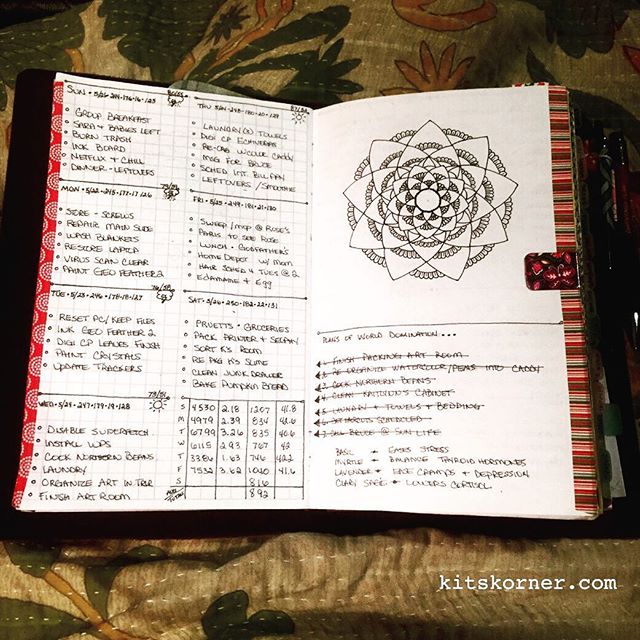 SUN • 5/21 •
• GROUP BREAKFAST
• SARA + BABIES LEFT
• BORN TRASH
• INK BOARD
• NETFLIX + CHILL
• DINNER - LEFTOVERS
MON • 5/22 • 245 • 177 • 17 • 126
• SERE - SCREWS
• REPAIR MAIN SLIDE
• WASH BLANKETS
• RESTORE
• VIRUS SCAN CLEAR
• PAINT GEO FEATHER 2
TUE • 5/23 • 246 • 178 • 18 • 127
• RESET PC/KEEP FILES
• INK GEO FEATHER 2
• DIGI CP LEAVES FINISH
• PAINT CRYSTALS
• UPDATE TRACKERS
WED • 5/24 • 247 • 179 • 19 • 128
• DISABLE SUPERFETCH
• INSTALL WPS
• COOK NORTHERN BEANS
• LAUNDRY
• ORGANIZE ART IN TRLR
• FINISH ART ROOM
THU 5/25 • 248 • 180 • 20 • 129
• LAUNDRY (2) TOWELS
• DIGI CP ECHINACEA
• RE-ORG WCOLOR CADDY
• MSG FOR BRUCE
• SCHED INT. BILL PAY
• LEFTOVERS / SMOOTHIE
FRI • 5/26 • 249 • 181 • 21 • 130
• SWEEP/MOP @ ROSE'S
• TO SEE ROSE
• LUNCH - GODFATHER'S
• HOME DEPOT W/ MOM
• HAIR SCHED 4 TUES @ 2
• EDAMAME + EGG
SAT • 5/26 • 250 • 182 • 22 • 131
• PRUETTS • GROCERIES
• PACK PRINTER +
• SORT K'S ROOM
• RE PKG K'S SLIME
• CLEAN JUNK DRAWER
• BAKE PUMPKIN BREAD
S 4530 2.18 1207 41.8
M 4979 2.39 834 42.6
T 6799 3.26 835 40.6
W 6115 2.93 767 42
T 3386 1.63 746 42.2
F 7532 3.62 1040 41.6
S 816
892
PLANS OF WORLD DOMINATION...
1. FINISH PACKING ART ROOM
2. RE ORGANIZE WATERCOLOR/PENS INTO CADDY
3. COOK NORTHERN BEANS
4. CLEAN KAITLYN'S CABINET
5. LAUNDRY + TOWELS + BEDDING
7. CALL BRUCE @ SUN LIFE
BASIL + EASES STRESS
MYRTLE + BALANCE THYROID HORMONES
LAVENDER + EASE CRAMPS + DEPRESSION
CLARY SAGE + LOWERS CORTISOL
kitskorner.com